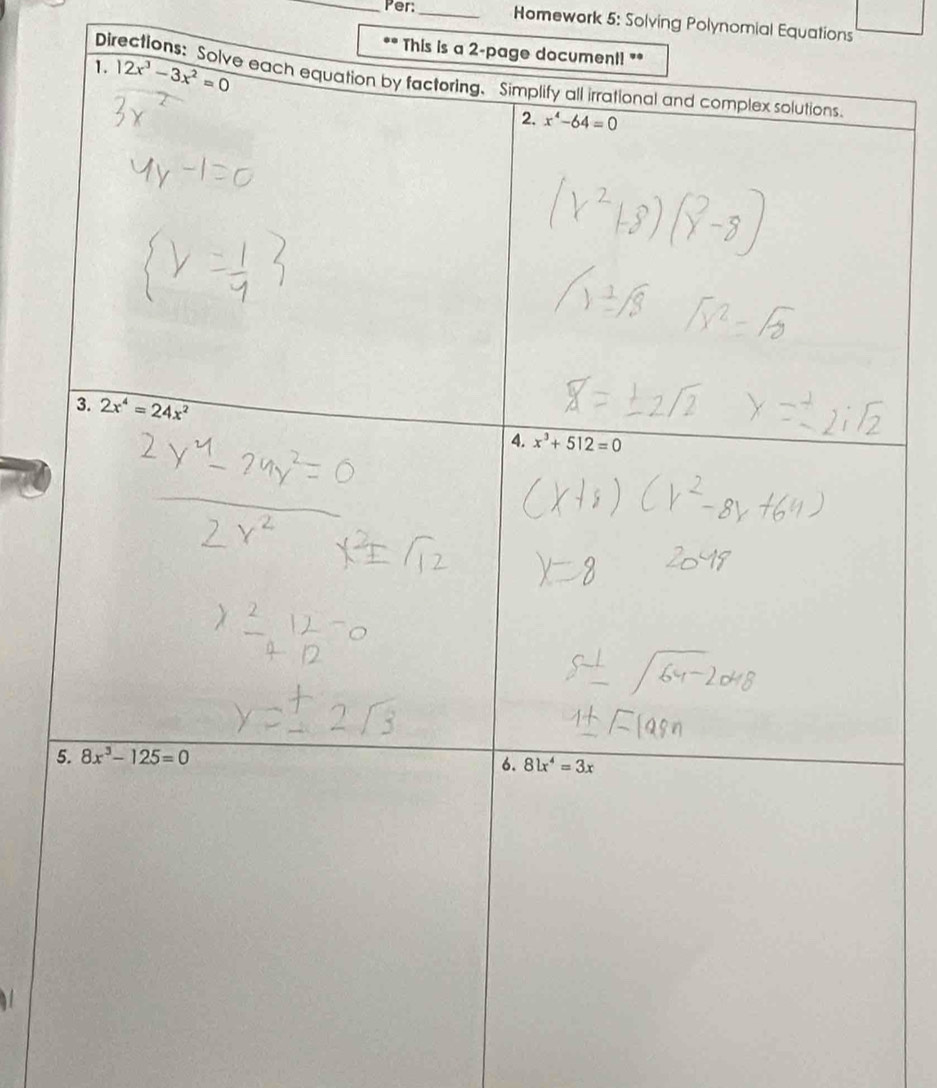 Per:
Homework 5: Solving Polynomial Equations
** This is a 2-page document! **
Directions: Solve each equation by factoring. Simplify all irrational and complex solutions.
1. 12x³ − 3x² = 0
3x²
4x − 1 = 0
{x = 1/4}
2. x⁴ − 64 = 0
(x² + 8)(x² − 8)
= ±2√2 x = ±2i√2
3. 2x⁴ = 24x²
2x⁴ − 24x² = 0
2x²
x² ± √12
x² − 12 = 0
+ 12
x = ± 2√3
4. x³ + 512 = 0
(x + 8) (x² − 8x + 64)
x = 8 2048
8 ± √64 − 2048
5. 8x³ − 125 = 0
6. 81x⁴ = 3x